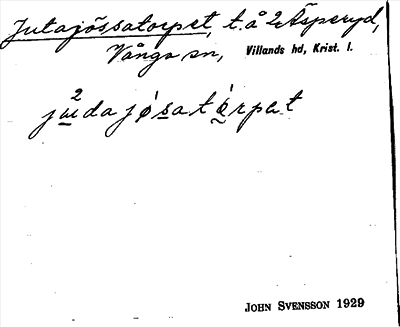 Jutajössatorpet, t. å 2 Äsperyd,
Vånga sn, Villands hd, Krist. l.
2
judajøsatörpet
JOHN SVENSSON 1929